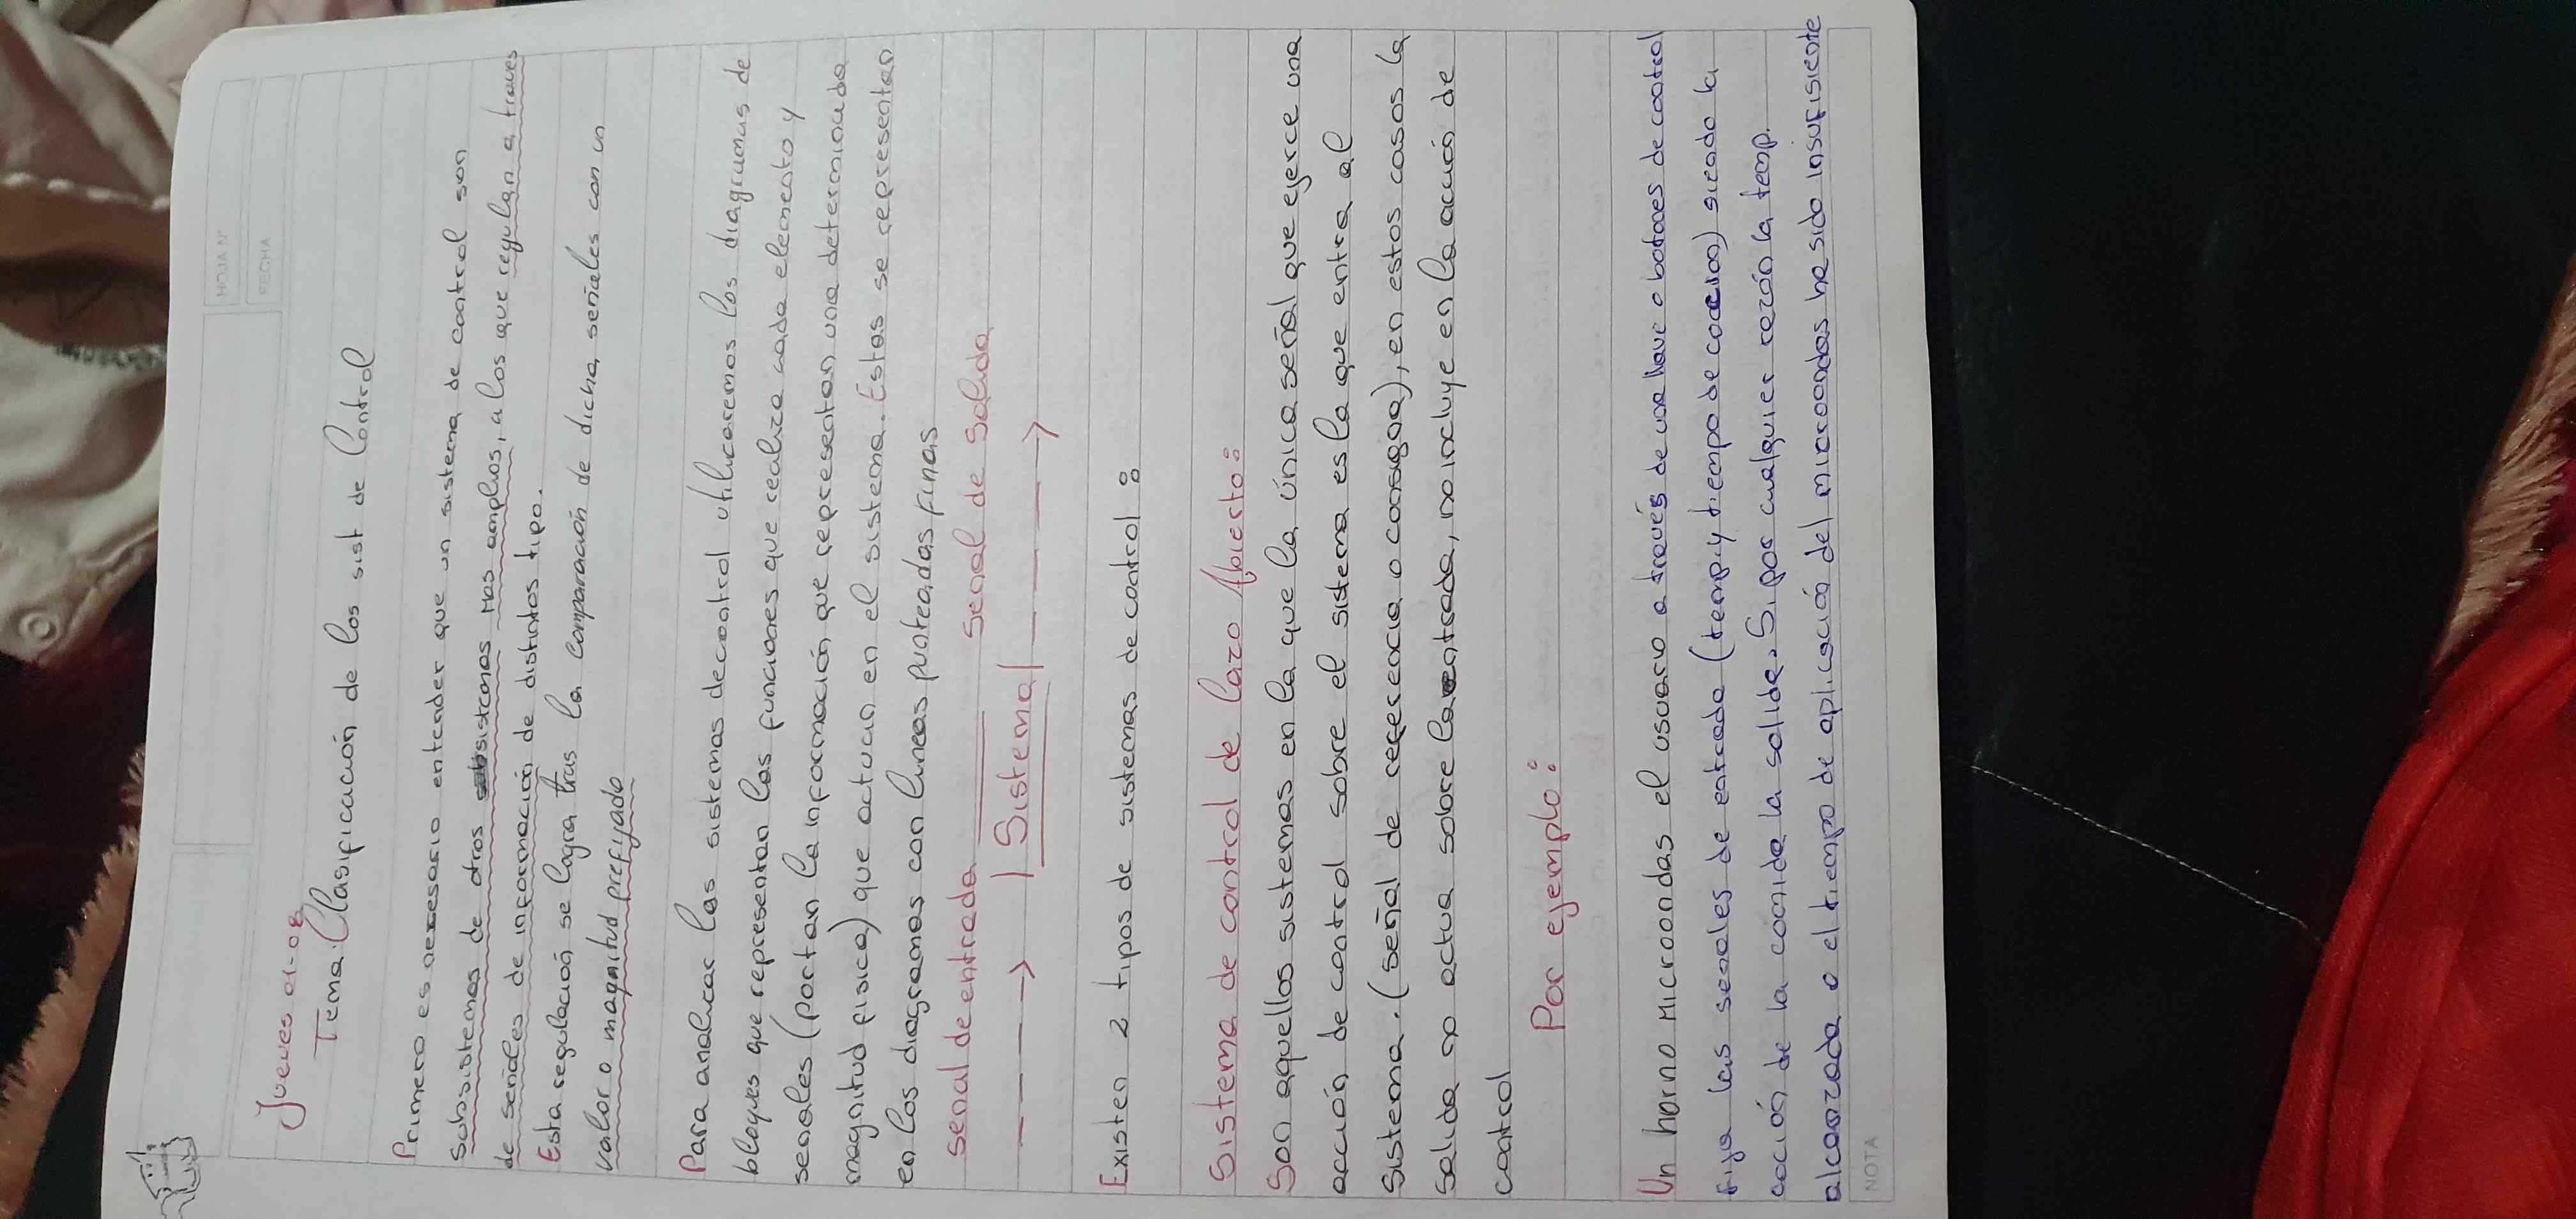 HOJA Nº
FECHA
Jueves 01-08
Tema: Clasificación de los sist de Control
Primero es necesario entender que un sistema de control son
subsistemas de otros sistemas mas amplios, a los que regulan a traves
de señales de información de distintos tipo.
Esta regulación se logra tras la comparación de dicha señales con un
valor o magnitud prefijado
Para analicar los sistemas de control utilicaremos los diagramas de
bloques que representan las funciones que realiza cada elemento y
senales (portan la información que representan una determinada
magnitud fisica) que actuan en el sistema. Estas se representan
en los diagramas con lineas punteadas finas
senal de entrada senal de salida
Sistema
Existen 2 tipos de sistemas de control:
Sistema de control de lazo Abierto:
Son aquellos sistemas en la que la única señal que ejerce una
acción de control sobre el sistema es la que entra al
sistema. (señal de referencia o consigna), en estos casos la
salida no actua sobre la entrada, no incluye en la acción de
control
Por ejemplo:
Un horno microondas el usuario a través de una llave o botones de control
fija las senales de entrada (temp. y tiempo de coccion) siendo la
coción de la comida la salida. Si por cualquier razón la temp.
alcanzada o el tiempo de aplicación del microondas ha sido insufisiente
NOTA